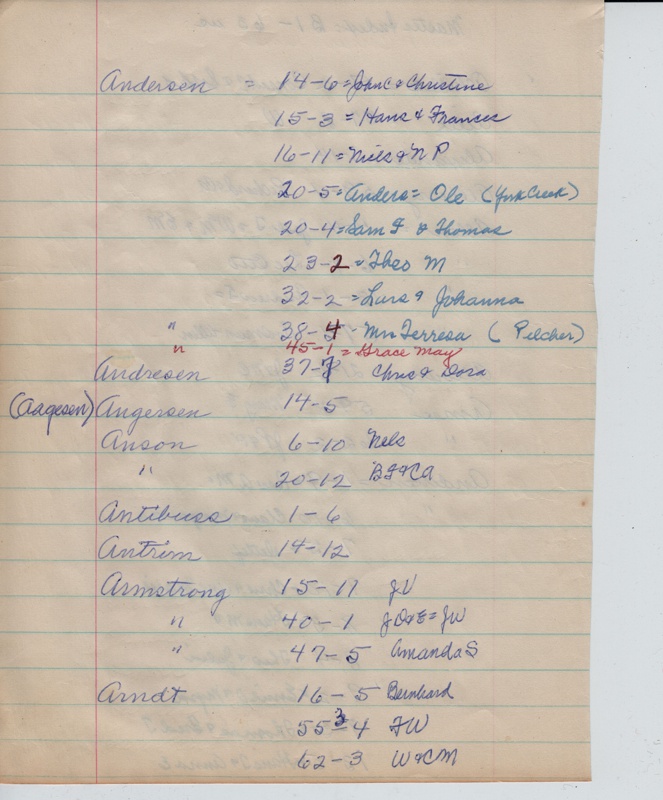 Andersen = 14-6 = John C & Christine
15-3 = Hans & Frances
16-11 = Niels & N P
20-5 = Anders = Ole (York Creek)
20-4 = Sam F & Thomas
23-2 = Theo M
32-2 = Lars & Johanna
" 38-4 - Mrs Terresa (Pilcher)
" 45-1 = Grace May
Andresen 37-7 Chris & Dora
(Aagesen) Angersen 14-5
Anson 6-10 Nels
" 20-12 B F & C A
Antibuss 1-6
Antrim 14-12
Armstrong 15-11 J V
" 40-1 J D & E = J W
" 47-5 Amanda S
Arndt 16-5 Bernhard
55-4 3 F W
62-3 W & C M